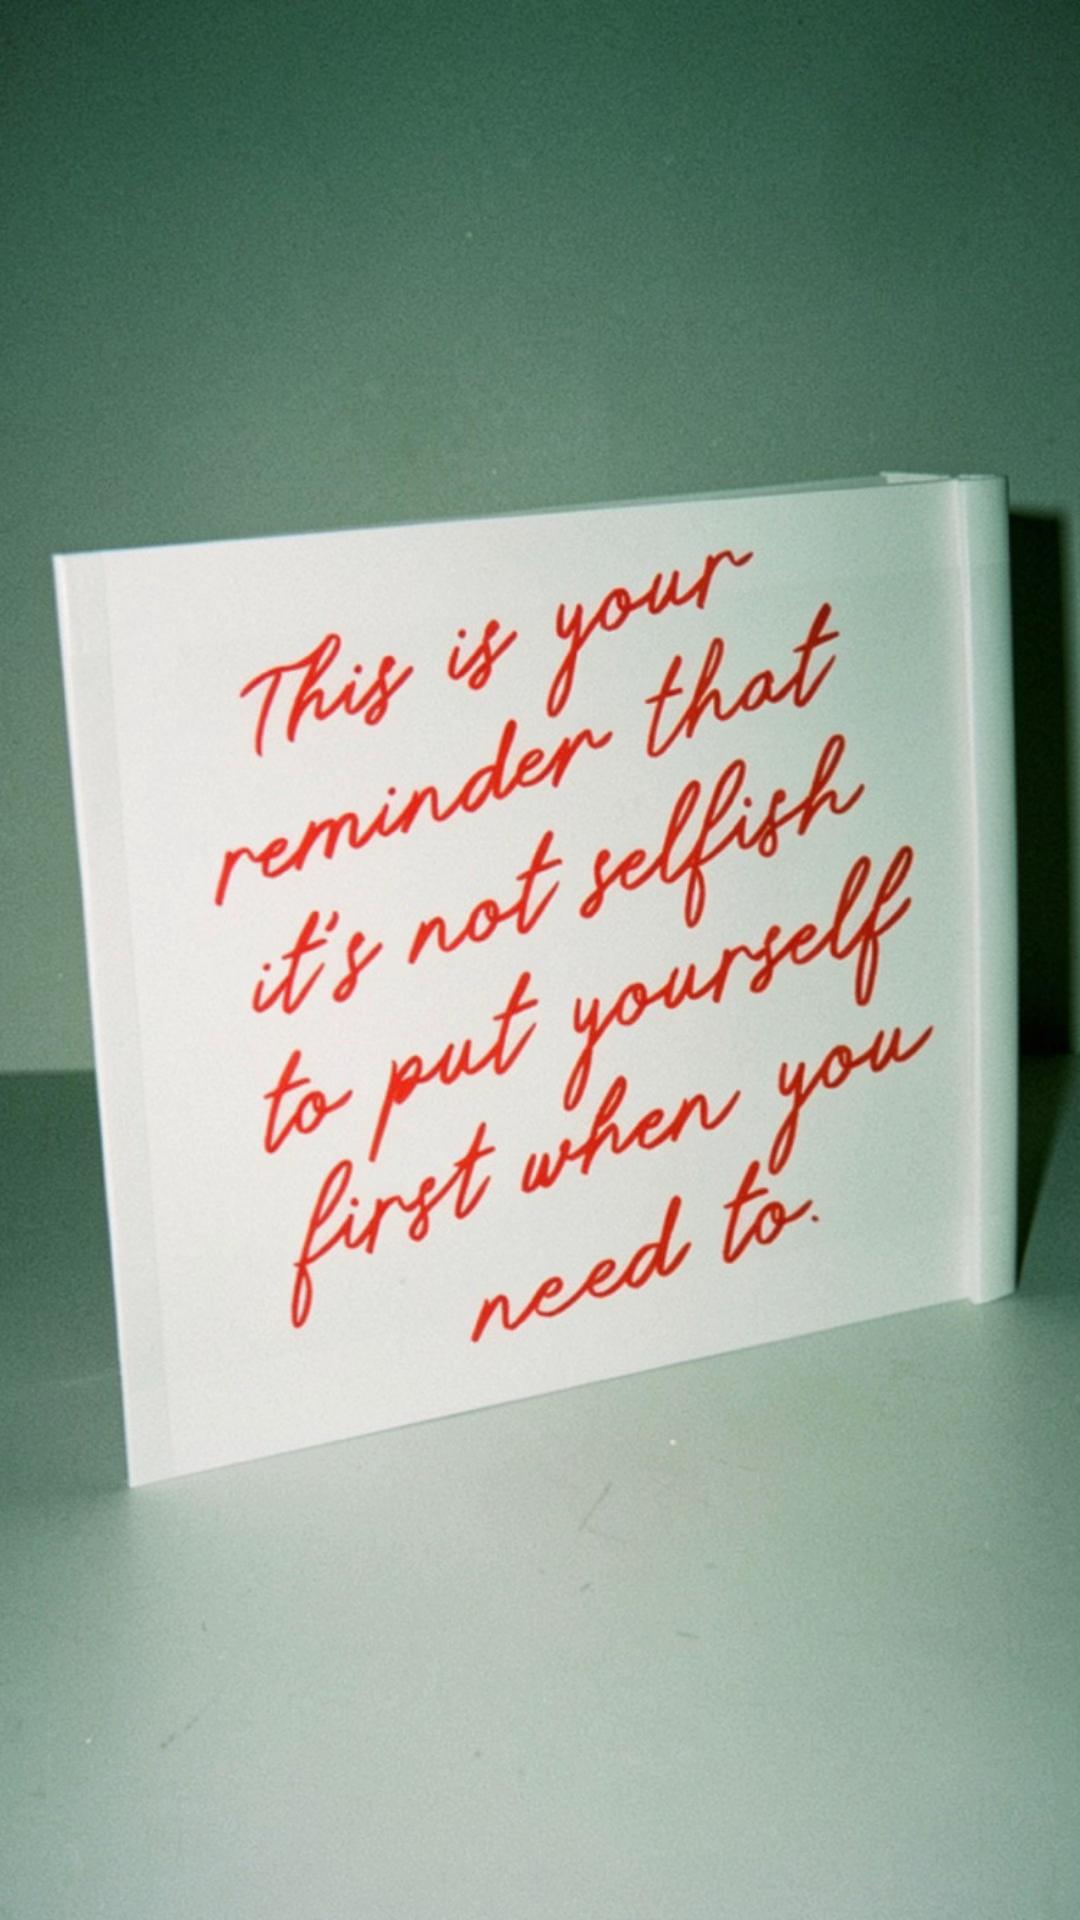 This is your
reminder that
it's not selfish
to put yourself
first when you
need to.